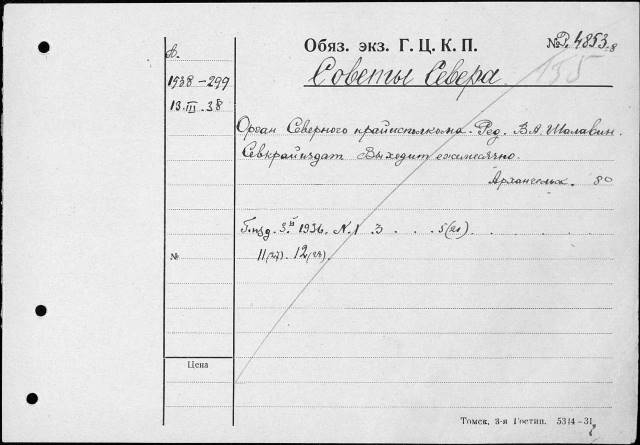 Обяз. экз. Г. Ц. К. П.
№ 4853-8
155
Советы Севера
В.
1938-299
13.III.38
Орган Северного крайисполкома. Ред. В.А. Шалавин.
Севкрайиздат Выходит ежемесячно.
Архангельск. 80
1936. N. 1 3 . . . 5(21)
11(27). 12(28).
№
Цена
Томск, 3-я Гостип. 5314-31